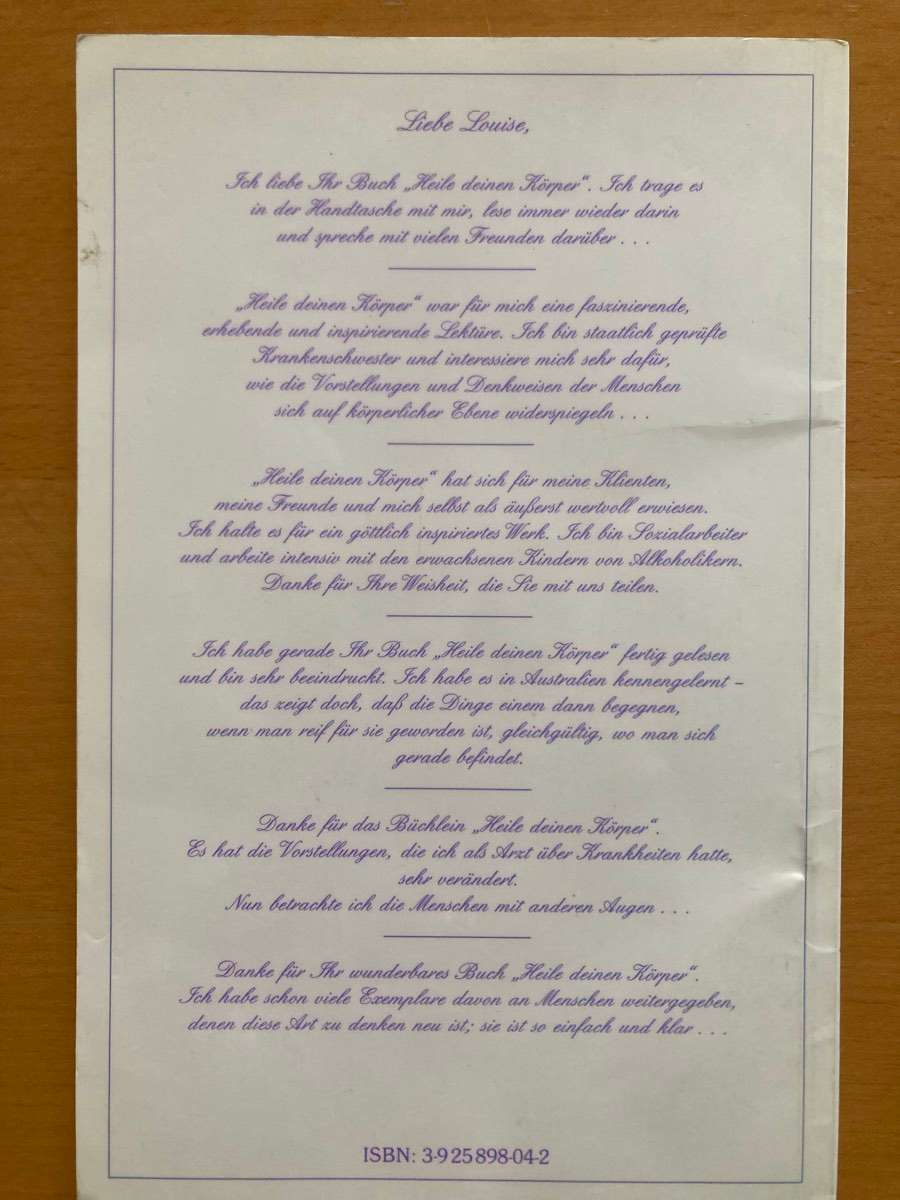 Liebe Louise,
Ich liebe Ihr Buch „Heile deinen Körper“. Ich trage es
in der Handtasche mit mir, lese immer wieder darin
und spreche mit vielen Freunden darüber . . .
„Heile deinen Körper“ war für mich eine faszinierende,
erhebende und inspirierende Lektüre. Ich bin staatlich geprüfte
Krankenschwester und interessiere mich sehr dafür,
wie die Vorstellungen und Denkweisen der Menschen
sich auf körperlicher Ebene widerspiegeln . . .
„Heile deinen Körper“ hat sich für meine Klienten,
meine Freunde und mich selbst als äußerst wertvoll erwiesen.
Ich halte es für ein göttlich inspiriertes Werk. Ich bin Sozialarbeiter
und arbeite intensiv mit den erwachsenen Kindern von Alkoholikern.
Danke für Ihre Weisheit, die Sie mit uns teilen.
Ich habe gerade Ihr Buch „Heile deinen Körper“ fertig gelesen
und bin sehr beeindruckt. Ich habe es in Australien kennengelernt –
das zeigt doch, daß die Dinge einem dann begegnen,
wenn man reif für sie geworden ist, gleichgültig, wo man sich
gerade befindet.
Danke für das Büchlein „Heile deinen Körper“.
Es hat die Vorstellungen, die ich als Arzt über Krankheiten hatte,
sehr verändert.
Nun betrachte ich die Menschen mit anderen Augen . . .
Danke für Ihr wunderbares Buch „Heile deinen Körper“.
Ich habe schon viele Exemplare davon an Menschen weitergegeben,
denen diese Art zu denken neu ist; sie ist so einfach und klar . . .
ISBN: 3-925898-04-2